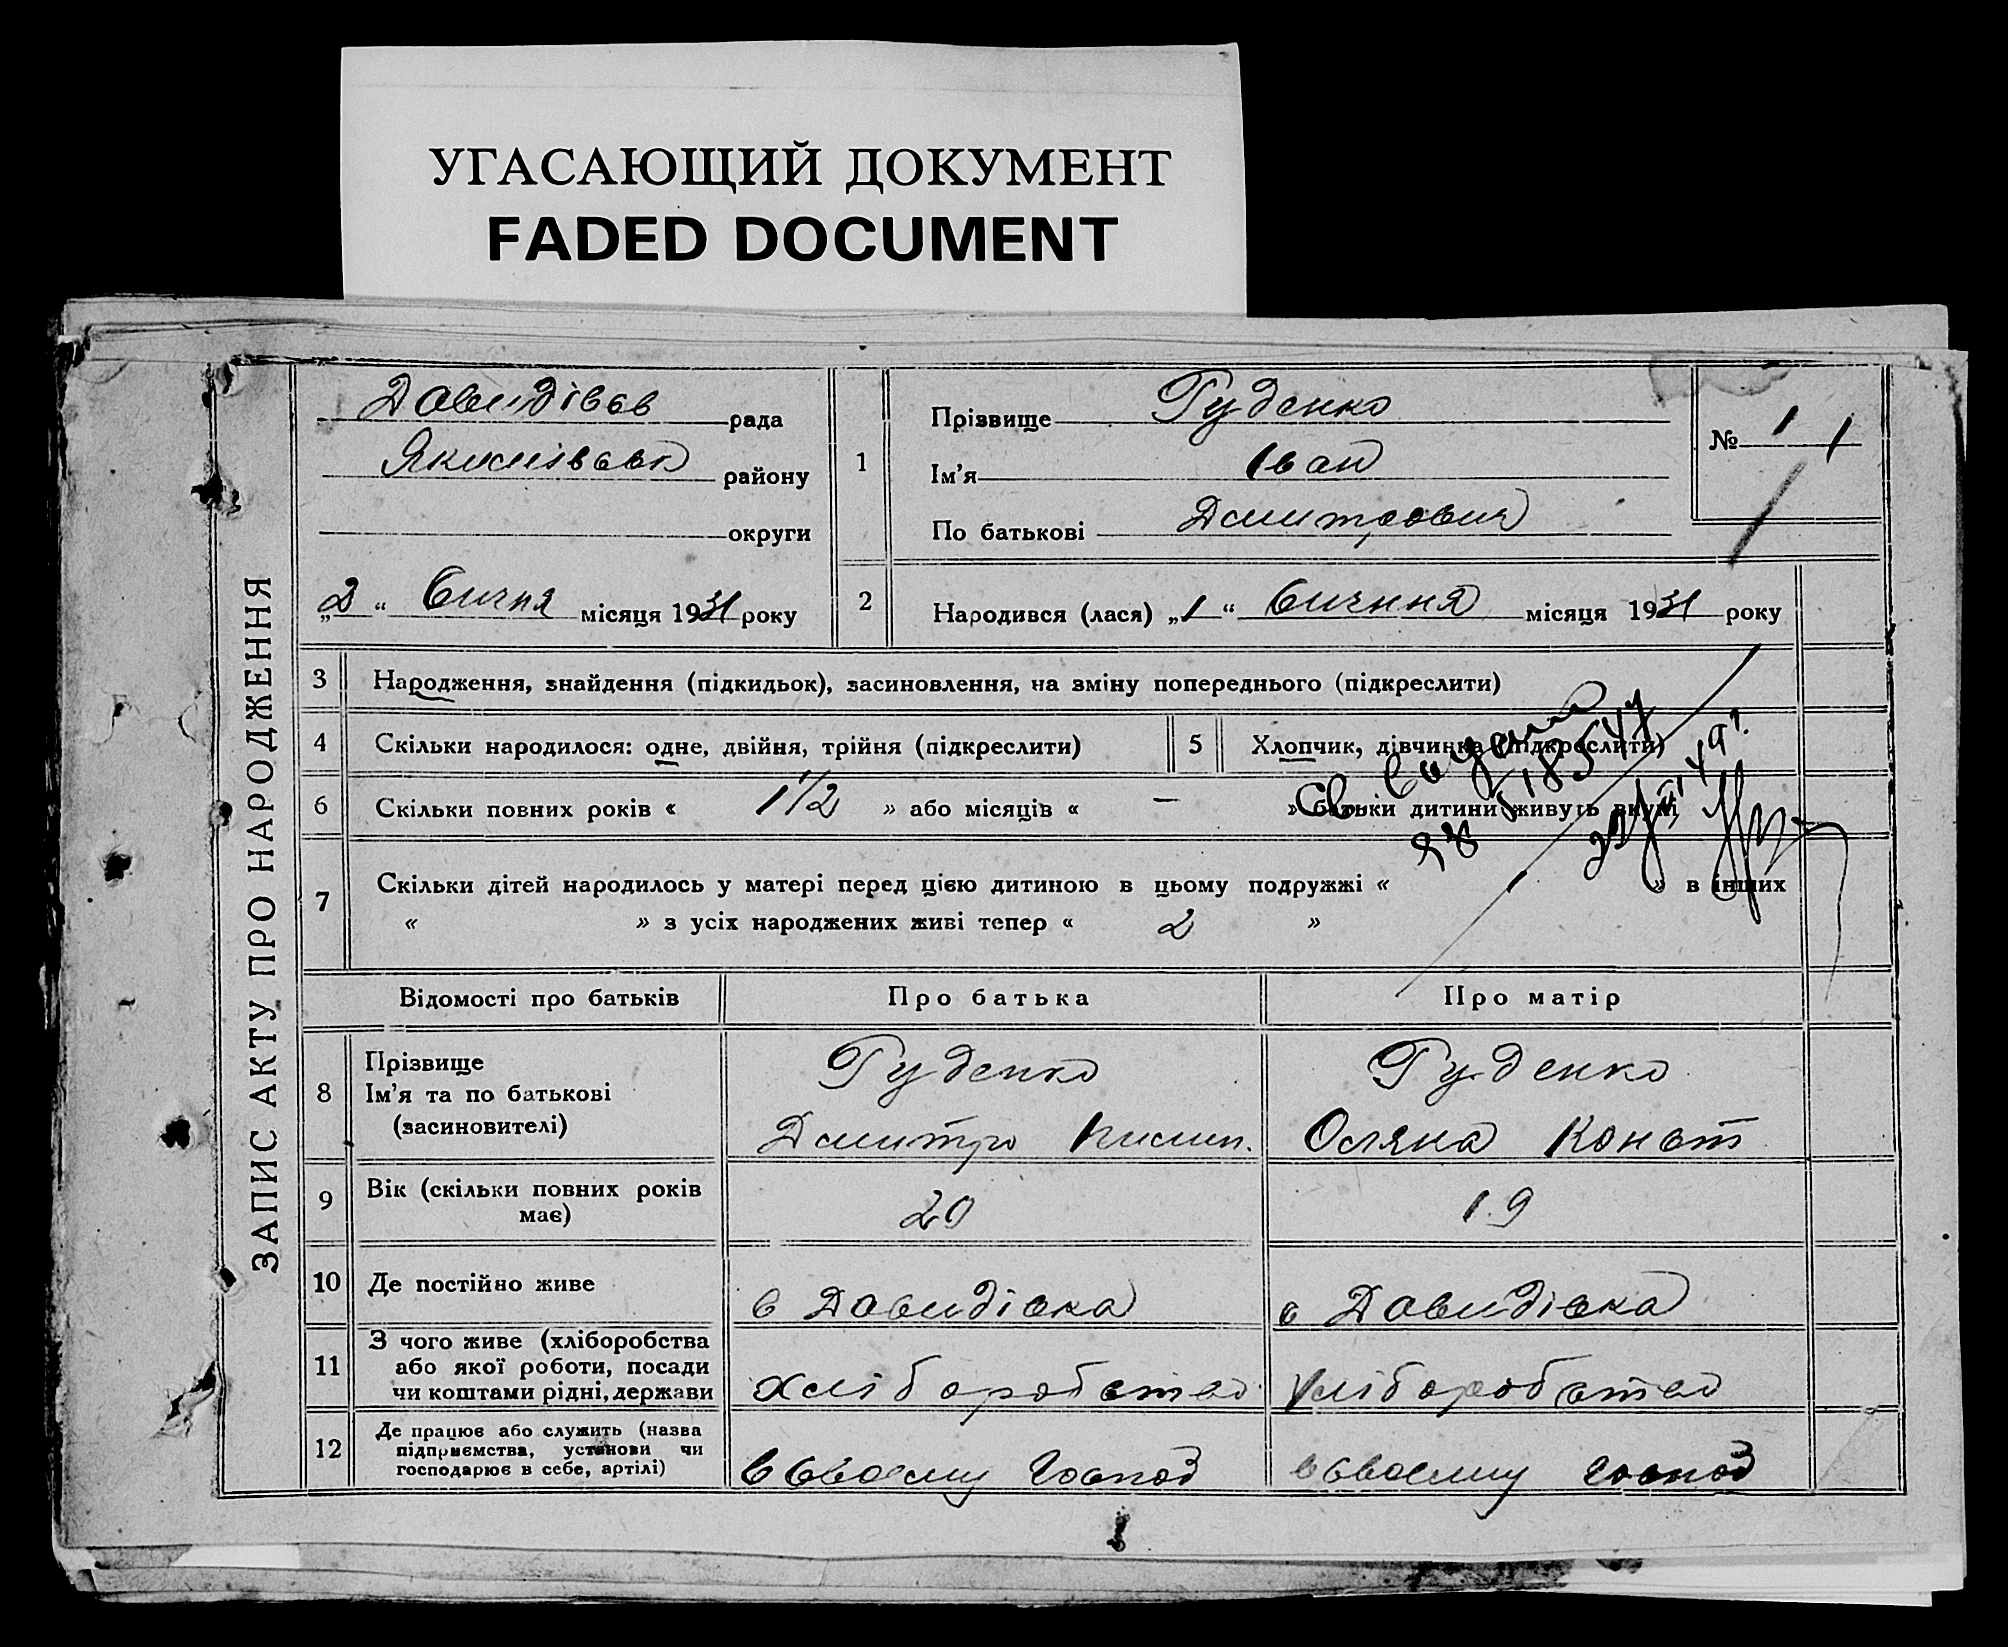 УГАСАЮЩИЙ ДОКУМЕНТ
FADED DOCUMENT
ЗАПИС АКТУ ПРО НАРОДЖЕННЯ
Давидівсв рада
Якимівськ району
округи
„2“ Січня місяця 1931 року
1
Прізвище Руденко
Ім'я Іван
По батькові Дмитрович
№ 1 1
2
Народився (лася) „1“ Січння місяця 1931 року
3 Народження, знайдення (підкидьок), засиновлення, на зміну попереднього (підкреслити)
4 Скільки народилося: одне, двійня, трійня (підкреслити)
5 Хлопчик, дівчинка (підкреслити)
6 Скільки повних років « 1 1/2 » або місяців « — » батьки дитини живуть вкупі
7 Скільки дітей народилось у матері перед цією дитиною в цьому подружжі « 1 » в інших
« » з усіх народжених живі тепер « 2 »
Відомості про батьків Про батька Про матір
8 Прізвище
Ім'я та по батькові
(засиновителі)
Руденко
Дмитро
Руденко
Оляна Конст
9 Вік (скільки повних років
має)
20
19
10 Де постійно живе
с Давидівка
с Давидівка
11 З чого живе (хліборобства
або якої роботи, посади
чи коштами рідні, держави
хліборобство
хліборобство
12 Де працює або служить (назва
підприємства, установи чи
господарює в себе, артілі)
в своєму господ
в своєму господ